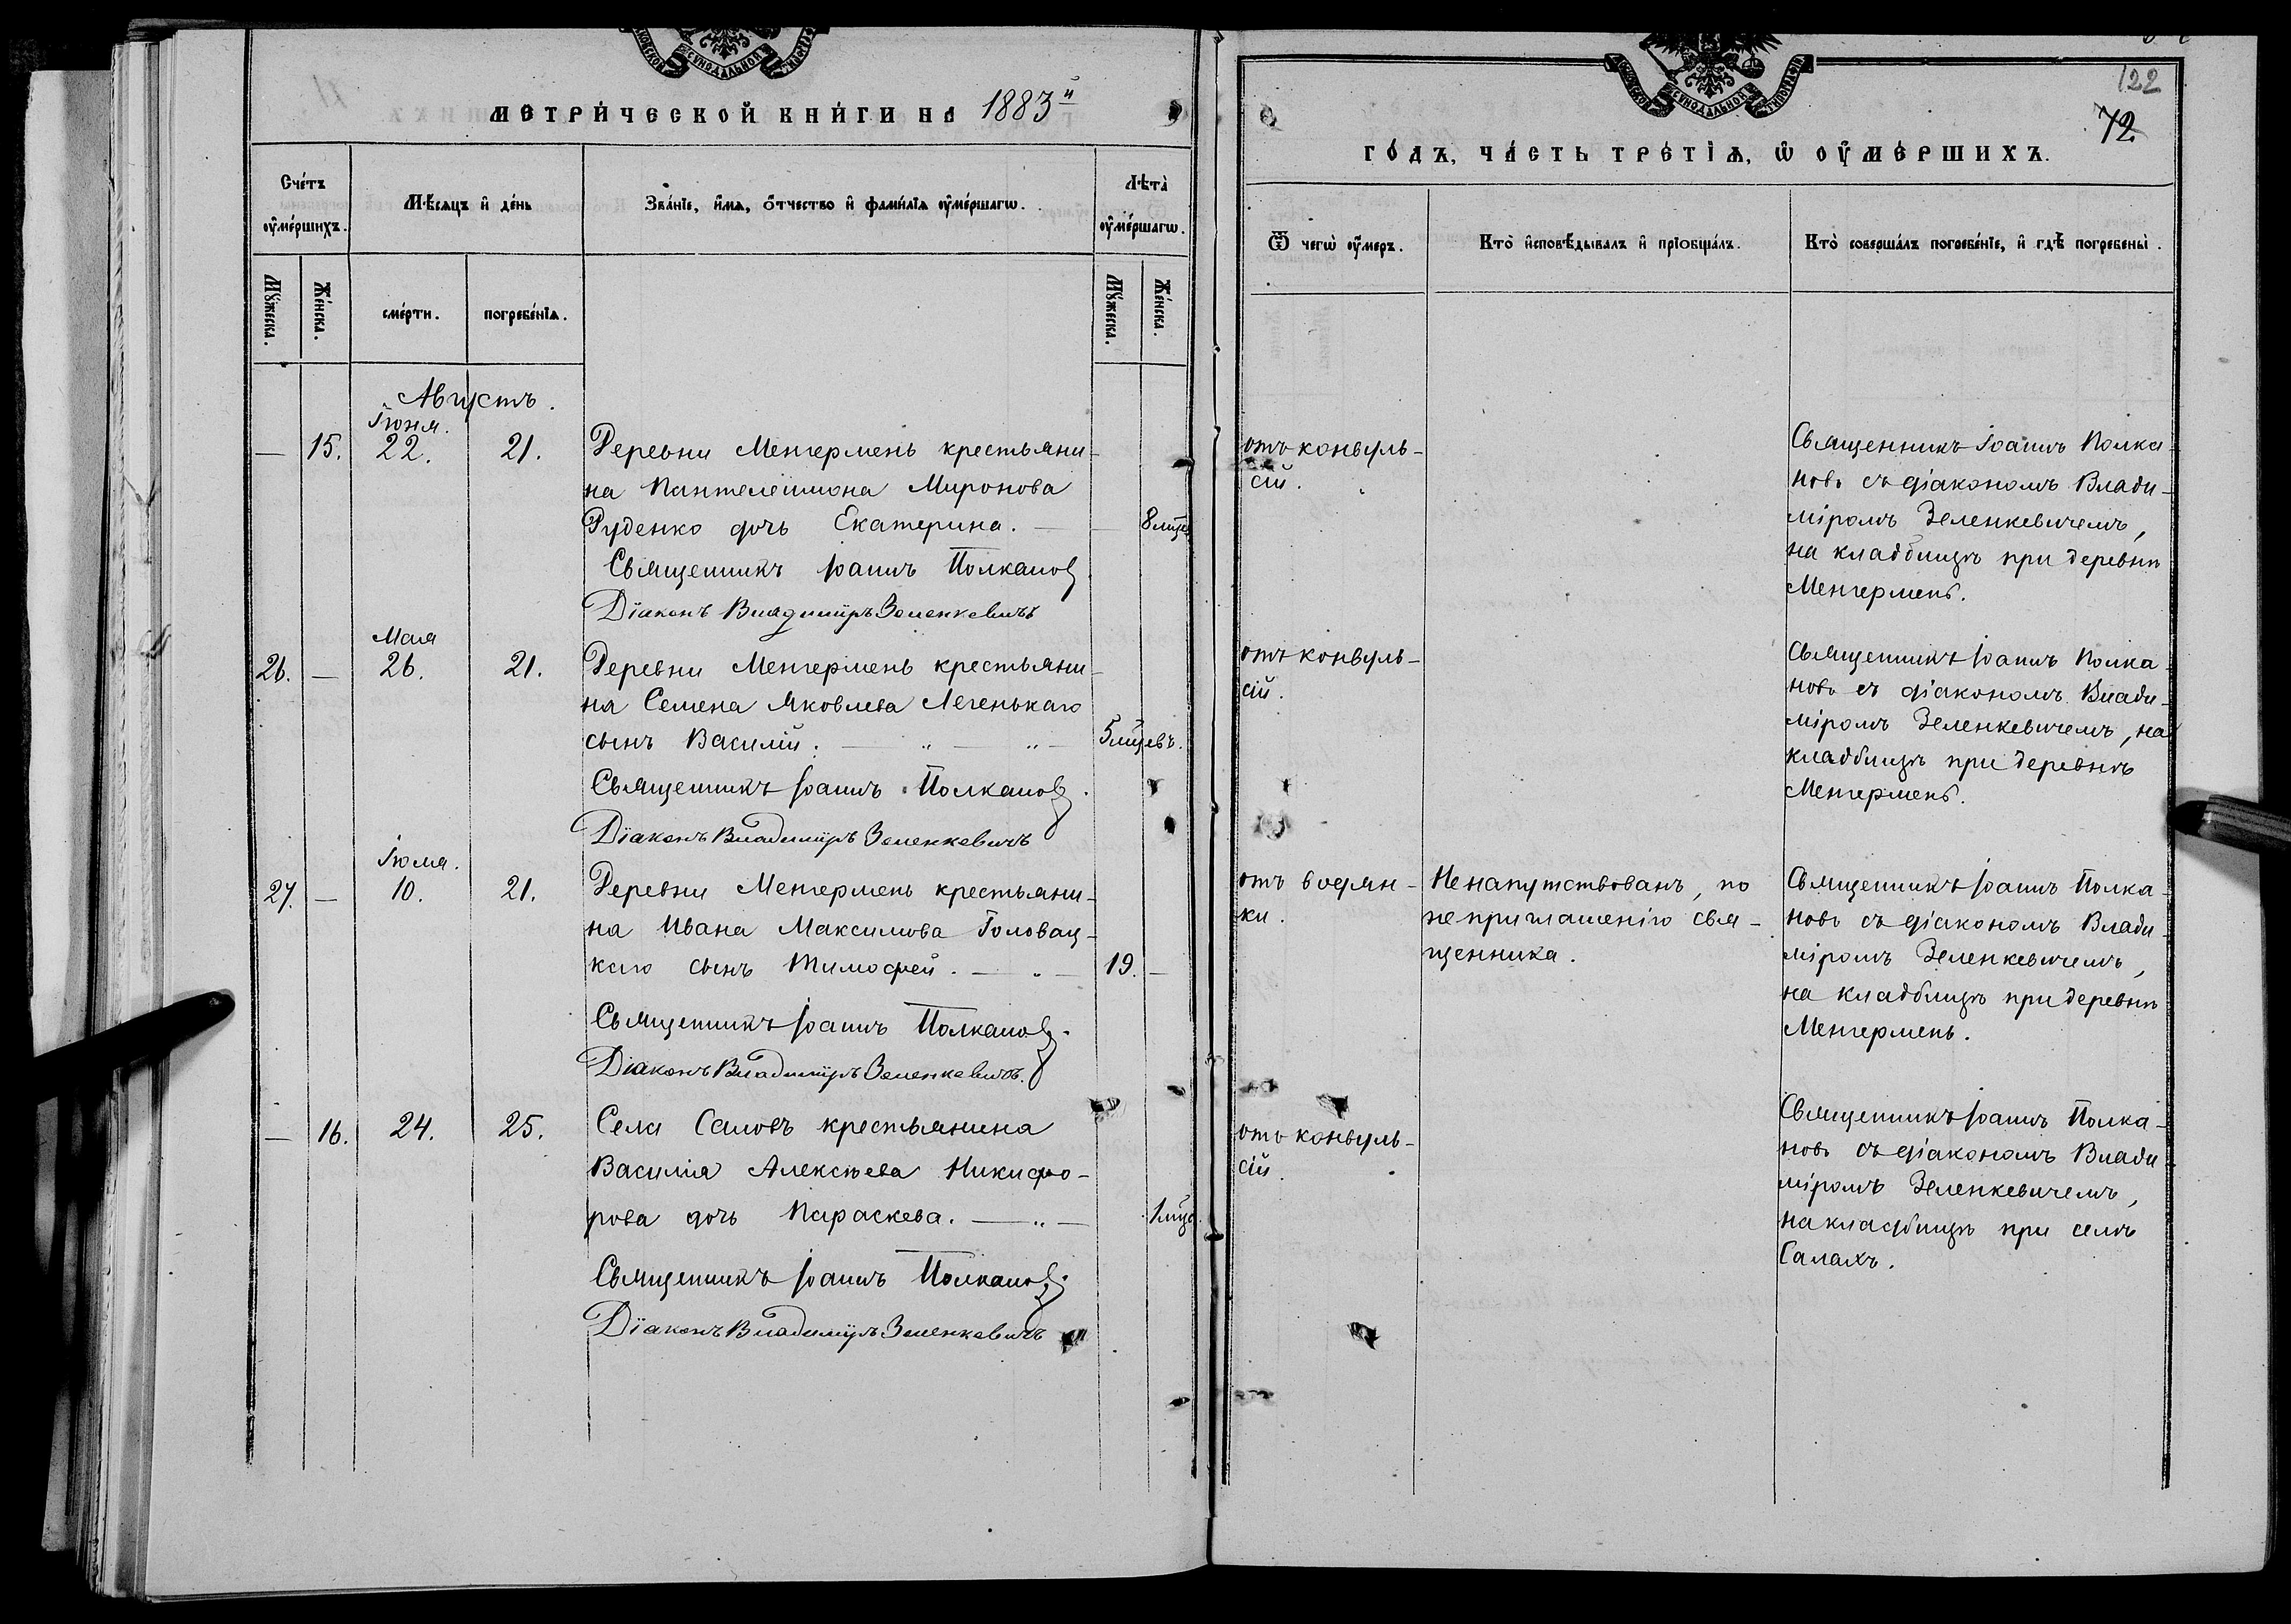 МОСКОВСКОЙ СѴНОДАЛЬНОЙ ТИПОГРАФІИ
МЕТРИ́ЧЕСКОЙ КНИ́ГИ НА 1883й
Сче́тъ ᲂу҆ме́ршихъ.
Мѣ́сяцъ и҆ де́нь
Зва́нїе, и҆́мѧ, ѻ҆́тчество и҆ фами́лїѧ ᲂу҆ме́ршагѡ.
Лѣ́та ᲂу҆ме́ршагѡ.
Мꙋ́жеска.
Же́нска.
сме́рти.
погребе́нїѧ.
Мꙋ́жеска.
Же́нска.
Августъ.
Іюня.
— 15. 22. 21. Деревни Менгермень крестьяни-
на Пантелеимона Миронова
Руденко дочь Екатерина. — — 8 мцев
Священникъ Іоаннъ Полкановъ
Діаконъ Владиміръ Зеленкевичъ
Мая
26. — 26. 21. Деревни Менгермень крестьяни-
на Семена Яковлева Легенькаго
сынъ Василій. — „ — „ — 5 мцевъ.
Священникъ Іоаннъ Полкановъ.
Діаконъ Владиміръ Зеленкевичъ
Іюля.
27. — 10. 21. Деревни Менгермень крестьяни-
на Ивана Максимова Головац-
каго сынъ Тимофей. — „ — 19. —
Священникъ Іоаннъ Полкановъ.
Діаконъ Владиміръ Зеленкевичъ.
— 16. 24. 25. Села Саловъ крестьянина
Василія Алексѣева Никифо-
рова дочь Параскева. — „ — 1 мцс.
Священникъ Іоаннъ Полкановъ.
Діаконъ Владиміръ Зеленкевичъ
МОСКОВСКОЙ СѴНОДАЛЬНОЙ ТИПОГРАФІИ
122
72
ГО́ДЪ, ЧА́СТЬ ТРЕ́ТІѦ, Ѡ҆ ОУ҆МЕ́РШИХЪ.
Ѿ чегѡ̀ ᲂу҆́меръ.
Кто̀ и҆сповѣ́дывалъ и҆ прїѡбща́лъ.
Кто̀ соверша́лъ погребе́нїе, и҆ гдѣ̀ погребены̀.
отъ конвуль-
сій.
Священникъ Іоаннъ Полка-
новъ съ діакономъ Влади-
міромъ Зеленкевичемъ,
на кладбищѣ при деревнѣ
Менгермень.
отъ конвуль-
сій.
Священникъ Іоаннъ Полка-
новъ съ діакономъ Влади-
міромъ Зеленкевичемъ, на
кладбищѣ при деревнѣ
Менгермень.
отъ водян-
ки.
Не напутствованъ, по
не приглашенію свя-
щенника.
Священникъ Іоаннъ Полка-
новъ съ діакономъ Влади-
міромъ Зеленкевичемъ,
на кладбищѣ при деревнѣ
Менгермень.
отъ конвуль-
сій.
Священникъ Іоаннъ Полка-
новъ съ діакономъ Влади-
міромъ Зеленкевичемъ,
на кладбищѣ при селѣ
Салахъ.